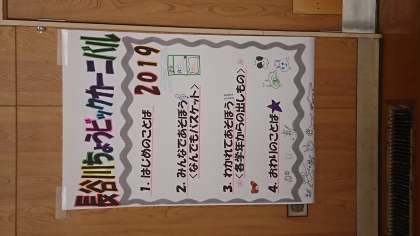 長谷川ちょうビックカーニバル
2019
1. はじめのことば
2. みんなであそぼう!!
<なんでもバスケット>
3. わかれてあそぼう!!
<各学年からの出しもの>
4. おわりのことば★